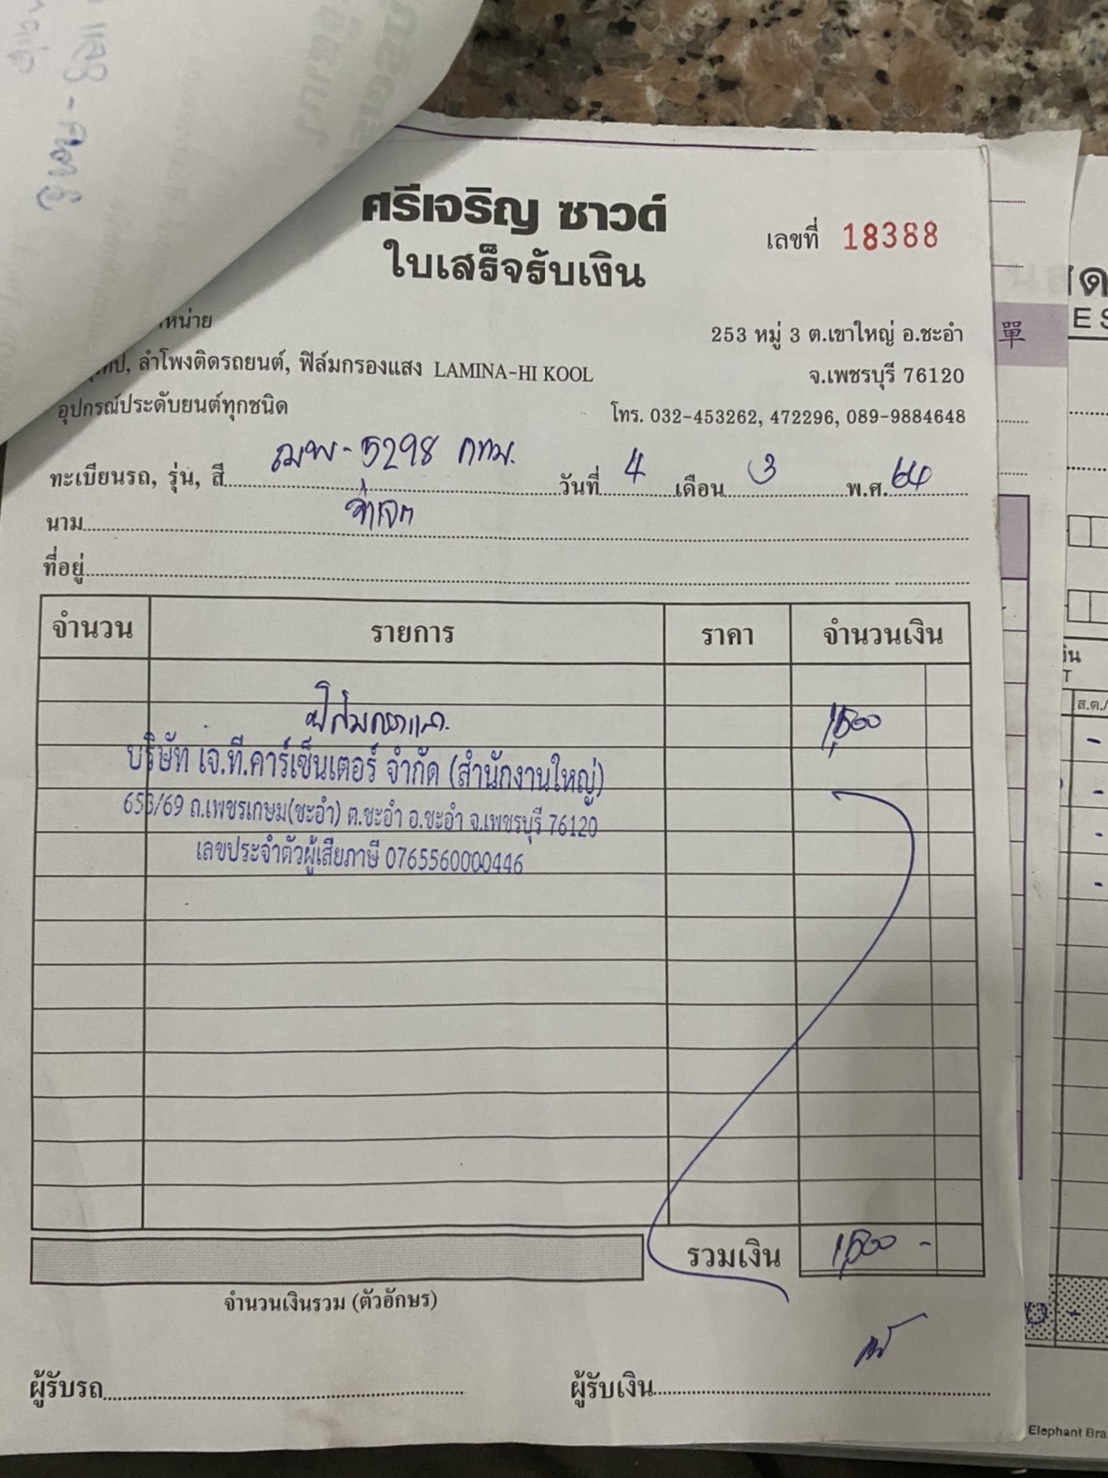 ศรีเจริญ ซาวด์
ใบเสร็จรับเงิน
เลขที่ 18388
หน่าย
ลำโพงติดรถยนต์, ฟิล์มกรองแสง LAMINA-HI KOOL
อุปกรณ์ประดับยนต์ทุกชนิด
253 หมู่ 3 ต.เขาใหญ่ อ.ชะอำ
จ.เพชรบุรี 76120
โทร. 032-453262, 472296, 089-9884648
ทะเบียนรถ, รุ่น, สี 5298 กทม. วันที่ 4 เดือน 3 พ.ศ. 64
นาม
ที่อยู่
จำนวน รายการ ราคา จำนวนเงิน
1,500
บริษัท เจ.ที.คาร์เซ็นเตอร์ จำกัด (สำนักงานใหญ่)
656/69 ถ.เพชรเกษม(ชะอำ) ต.ชะอำ อ.ชะอำ จ.เพชรบุรี 76120
เลขประจำตัวผู้เสียภาษี 0765560000446
รวมเงิน 1,500 -
จำนวนเงินรวม (ตัวอักษร)
ผู้รับรถ ผู้รับเงิน
單
ส.ต./
Elephant Bra